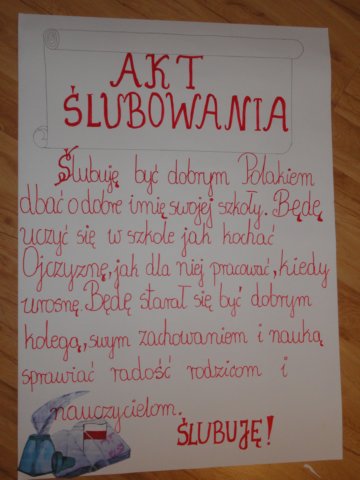 AKT
ŚLUBOWANIA
Ślubuję być dobrym Polakiem
dbać o dobre imię swojej szkoły. Będę
uczyć się w szkole jak kochać
Ojczyznę, jak dla niej pracować, kiedy
urosnę. Będę starał się być dobrym
kolegą, swym zachowaniem i nauką
sprawiać radość rodzicom i
nauczycielom.
ŚLUBUJĘ!